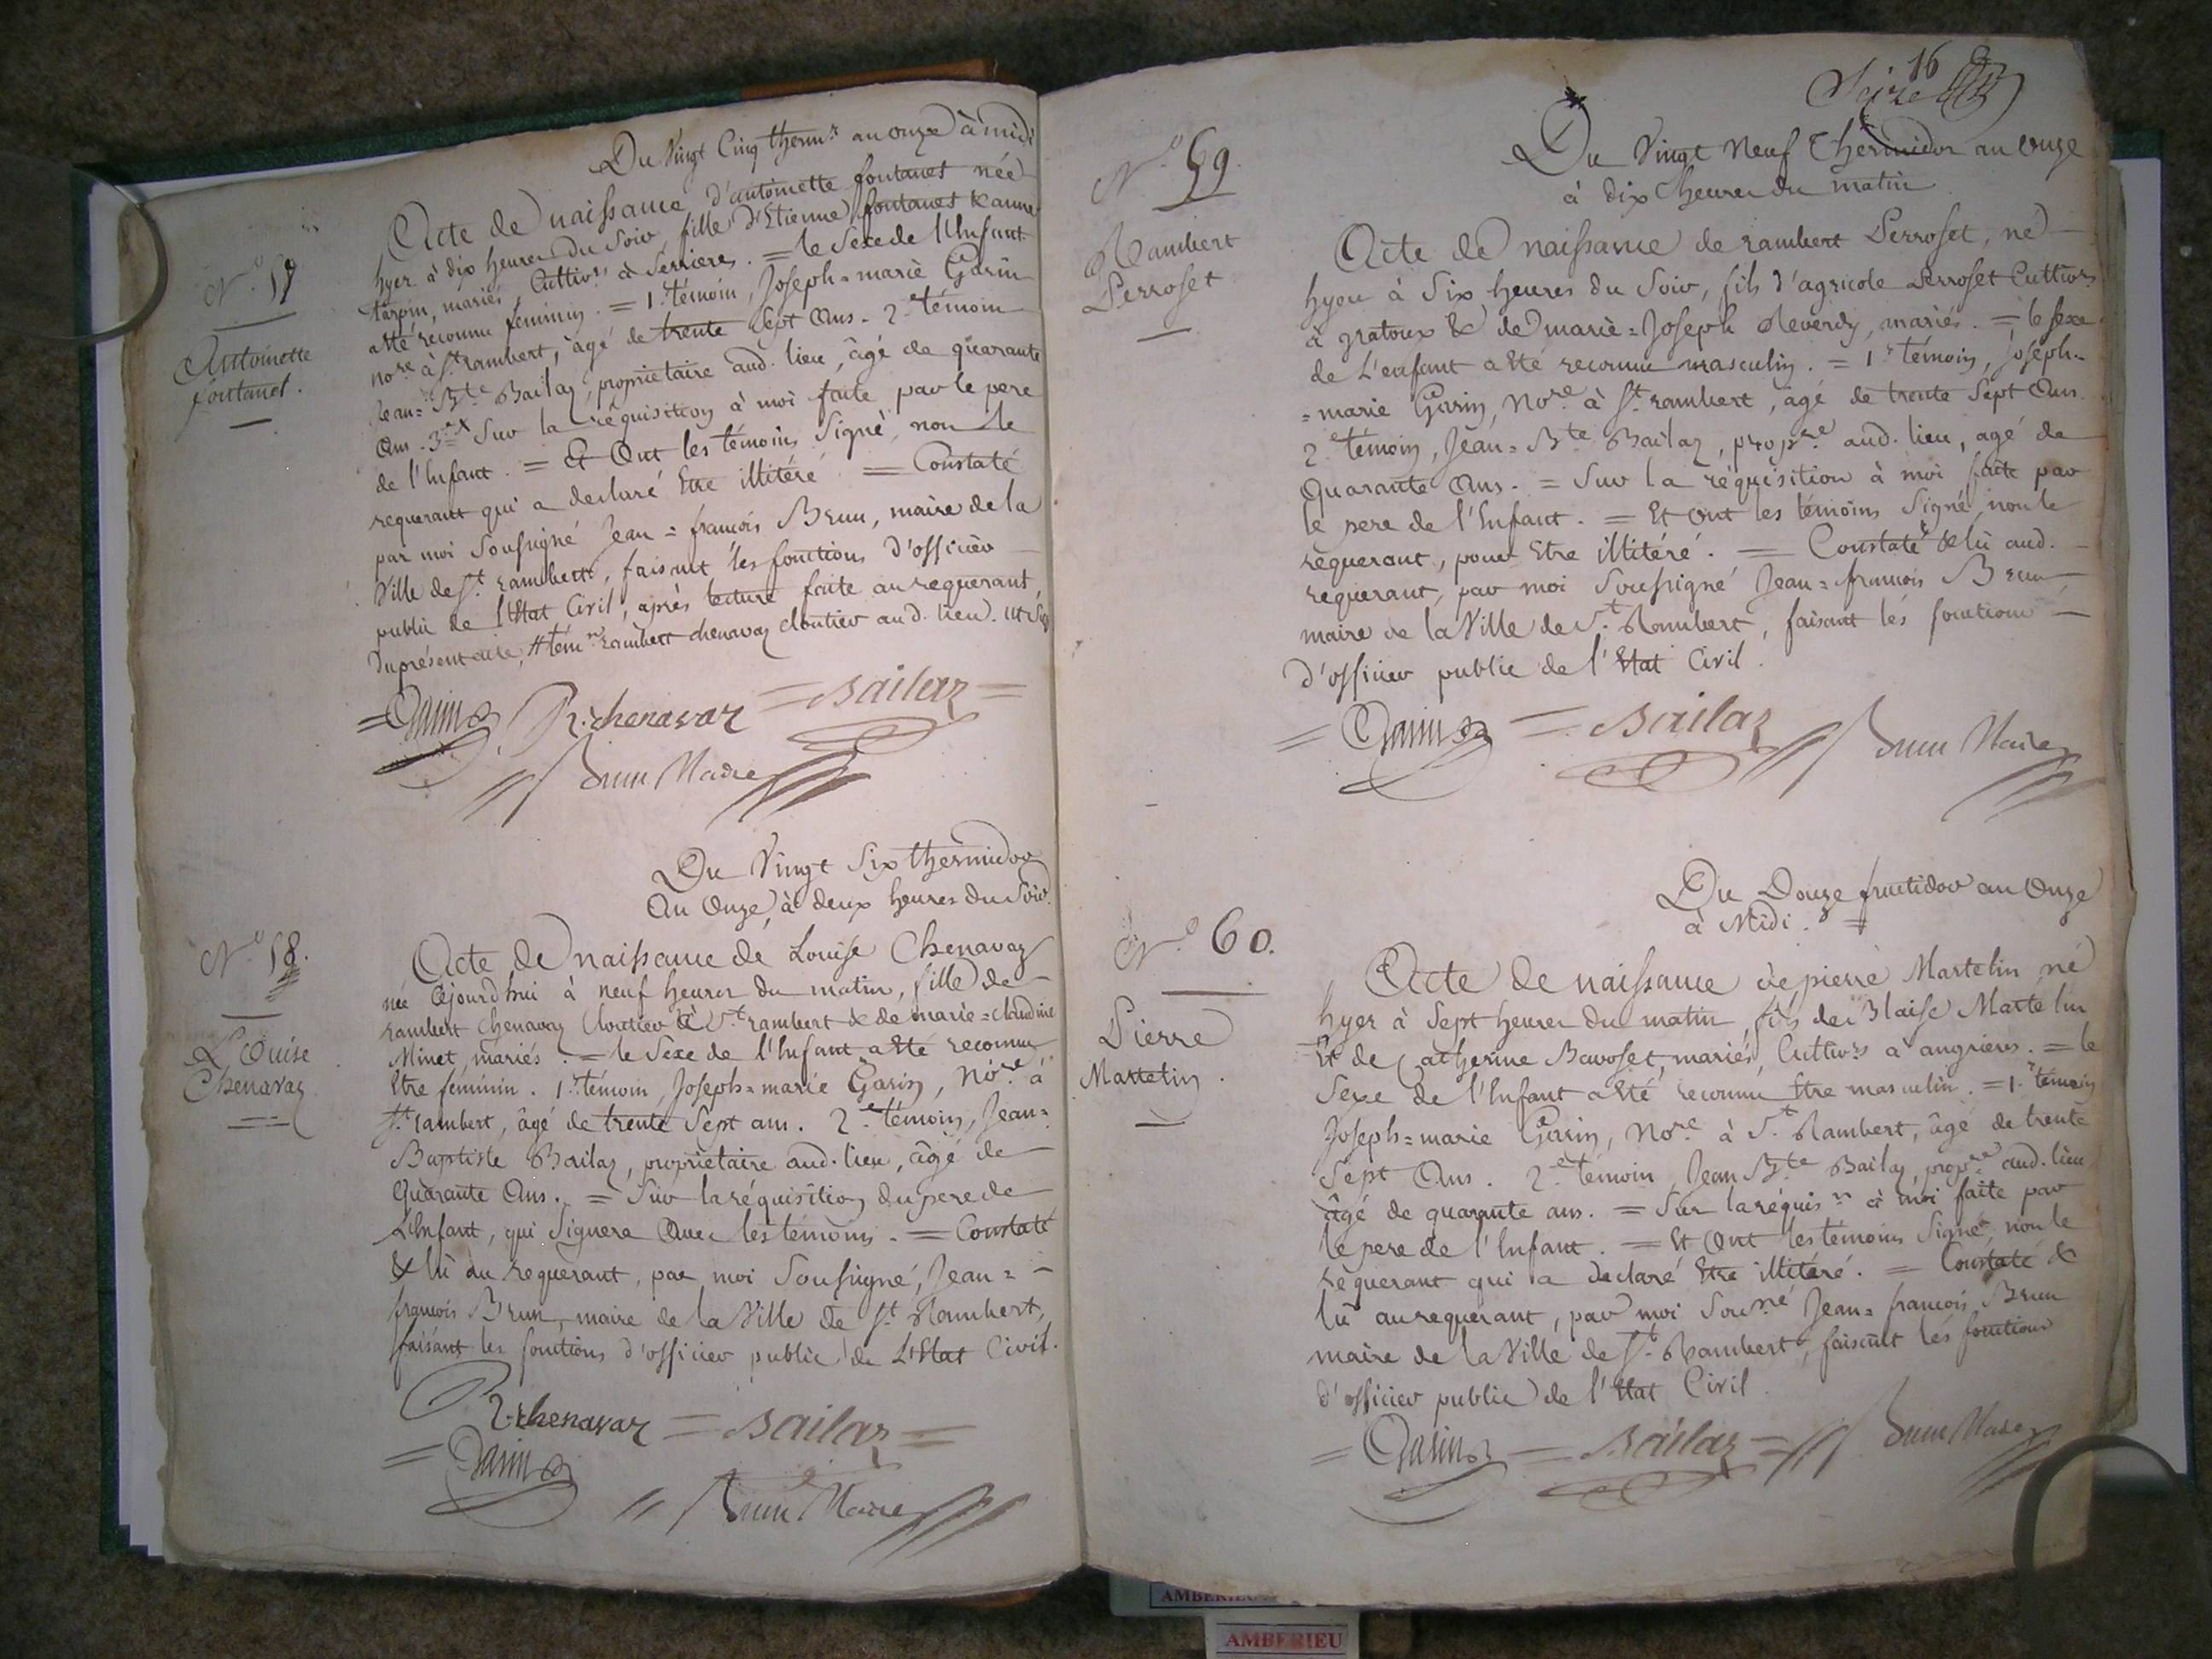 Du Vingt Cinq therm.r an onze à midi
N.o 57
Antoinette
fontanet.
Acte de naissance d'antoinette fontanet née
hyer à dix heures du Soir, fille d'Etienne fontanet & anne
tarpin, mariés, Cultiv.rs à Serrieres. = le Sexe de l'Enfant
a été reconnu feminin. = 1.r témoin, Joseph=marie Garin
no.re à S.t rambert, âgé de trente Sept Ans. 2.e témoin
Jean=B.te Bailaz, propriétaire aud. lieu, âgé de quarante
Ans. Sur la réquisition à moi faite par le pere
de l'Enfant. = Et Ont les témoins Signé, non le
requerant qui a declaré Etre illitéré. = Constaté
par moi Soussigné Jean=francois Brun, maire de la
Ville de S.t rambert, faisant les fonctions d'officier
public de l'Etat Civil, après lecture faite au requerant
du présent acte, rambert chenavaz cloutier aud. lieu.
=Garin R: chenavaz =Bailaz=
Brun Maire
Du Vingt Six thermidor
An Onze, à deux heures du Soir.
N.o 58.
Louise
Chenavaz
Acte de naissance de Louise Chenavaz
née Ajourd'hui à neuf heures du matin, fille de
rambert Chenavaz Cloutier à S.t rambert & de marie=claudine
Minet, mariés. = le Sexe de l'Enfant a été reconnu
Etre féminin. 1.r témoin, Joseph=marie Garin, No.re à
S.t rambert, âgé de trente Sept ans. 2.e témoin, Jean=
Baptiste Bailaz, propriétaire aud. lieu, âgé de
Quarante Ans. = Sur la réquisition du pere de
L'Enfant, qui Signera Avec les témoins. = Constaté
& lû au requerant, par moi Soussigné, Jean=
francois Brun, maire de la Ville de S.t Rambert,
faisant les fonctions d'officier public de L'Etat Civil.
R: chenavaz = Bailaz =
= Garin
Brun Maire
16
Seize
Du Vingt Neuf Thermidor an Onze
à dix heures du matin
N.o 59.
Rambert
Perroset
Acte de naissance de rambert Perroset, né
hyer à Six heures du Soir, fils d'agricole Perroset Cultiv.r
à gratoux & de marie=Joseph Reverdy, mariés. = le sexe
de L'enfant a été reconnu masculin. = 1.r témoin, Joseph=
=marie Garin, No.re à S.t rambert, âgé de trente Sept Ans.
2.e témoin, Jean=B.te Bailaz, prop.re aud. lieu, agé de
Quarante Ans. = Sur la réquisition à moi faite par
le pere de l'Enfant. = Et Ont les témoins Signé, non le
requerant, pour Etre illitéré. = Constaté & lû aud.
requerant, par moi Soussigné Jean=francois Brun
maire de la Ville de S.t Rambert, faisant les fonctions
d'officier public de l'Etat Civil.
= Garin = Bailaz Brun Maire
Du Douze fructidor an Onze
à Midi.
N.o 60.
Pierre
Martelin.
Acte de naissance de pierre Martelin né
hyer à Sept heures du matin, fils de Blaise Martelin
Et de Catherine Bavoset, mariés, Cultiv.rs à angrieres. = le
Sexe de l'Enfant a été reconnu Etre masculin. = 1.r témoin
Joseph=marie Garin, No.re à S.t Rambert, âgé de trente
Sept Ans. 2.e témoin, Jean B.te Bailaz, prop.re aud. lieu
âgé de quarante ans. = Sur la réquis.on à moi faite par
le pere de l'Enfant. = Et Ont les témoins Signé, non le
requerant qui a declaré Etre illitéré. = Constaté &
lû au requerant, par moi Sou.né Jean=francois Brun
maire de la Ville de S.t Rambert, faisant les fonctions
d'officier public de l'Etat Civil
= Garin = Bailaz = Brun Maire
AMBERIEU
AMBERIEU